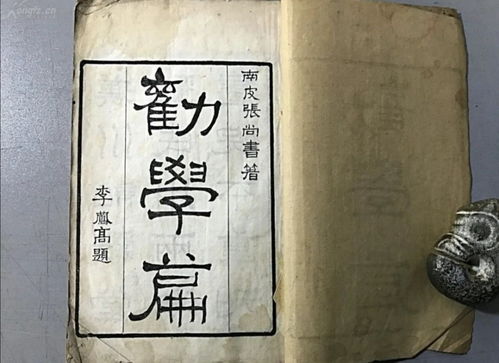 南皮張尚書著
勸學篇
李鳳高題